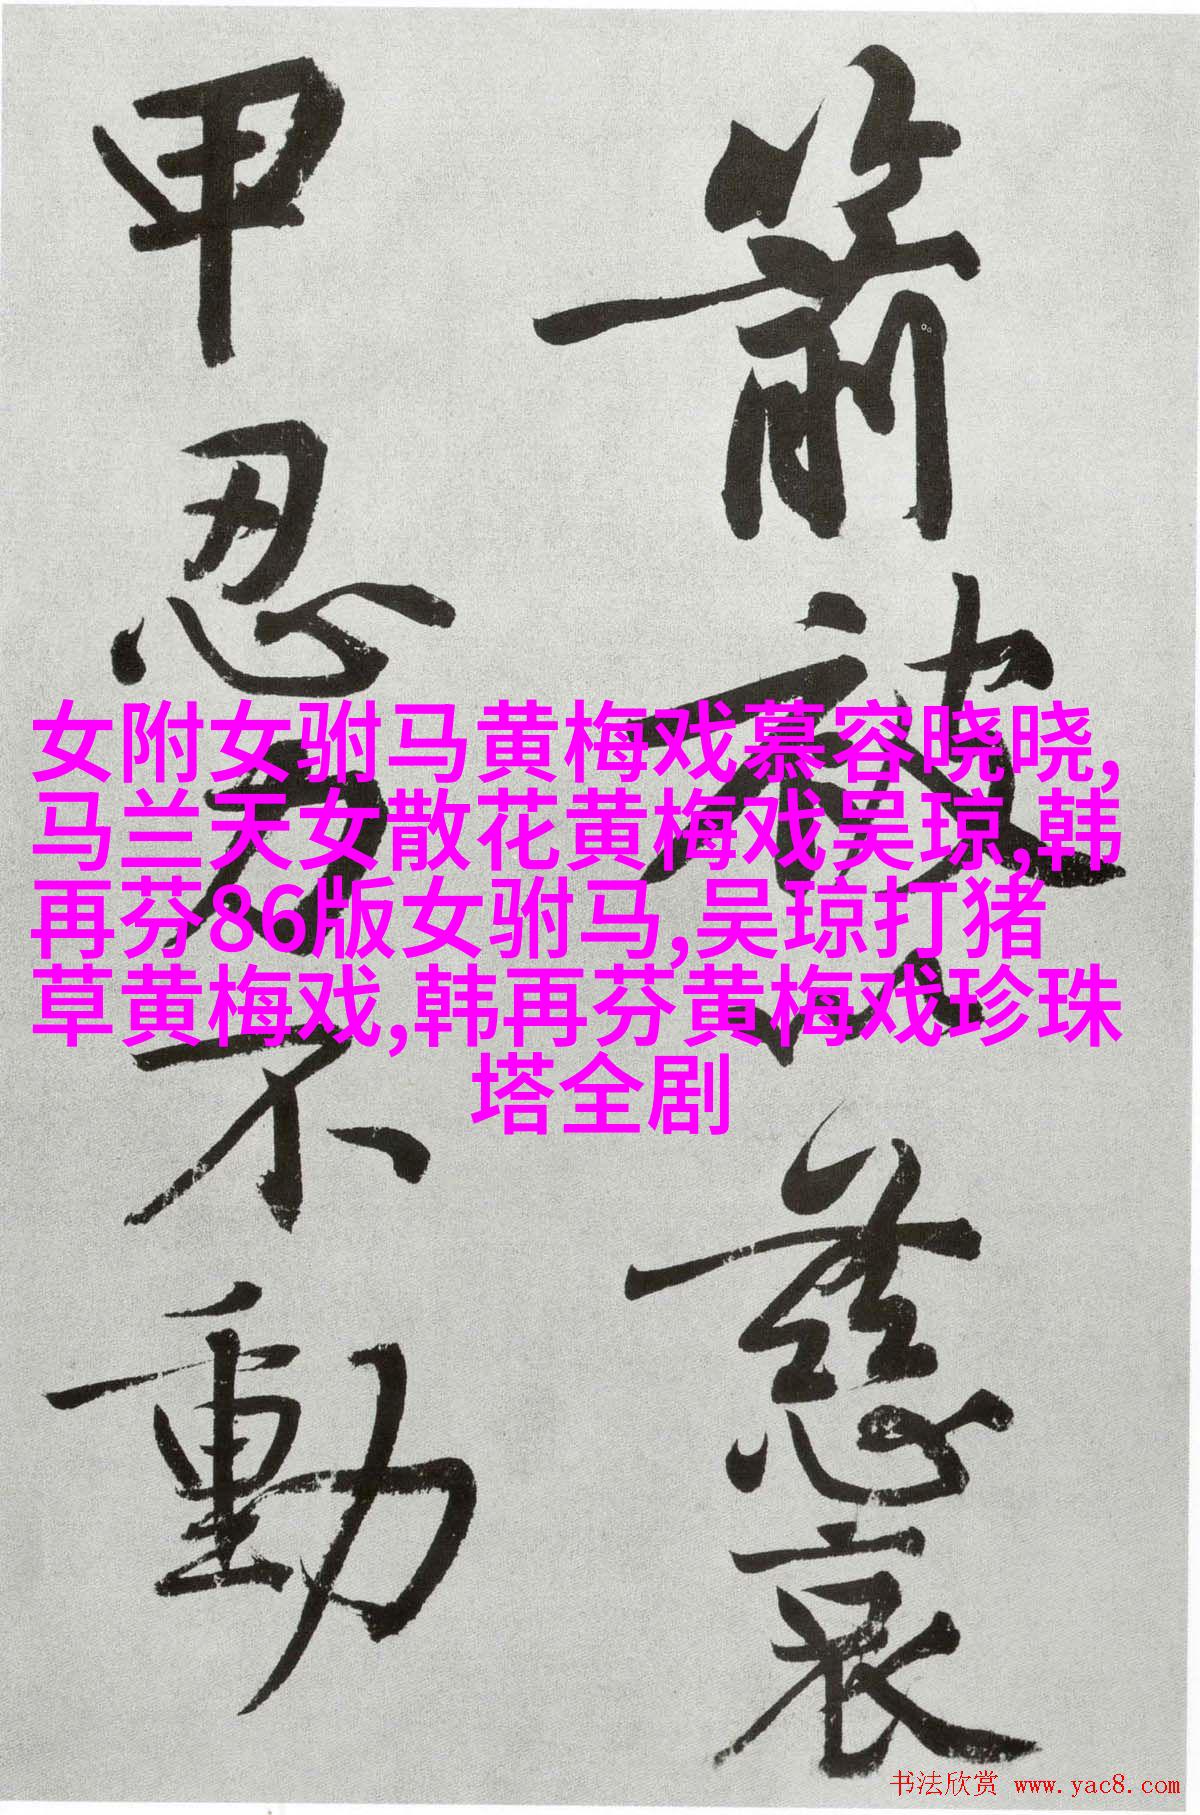 箭被以慈哀
甲忍力不動
女附女驸马黄梅戏慕容晓晓,
马兰天女散花黄梅戏吴琼,韩
再芬86版女驸马,吴琼打猪
草黄梅戏,韩再芬黄梅戏珍珠
塔全剧
书法欣赏 www.yac8.com